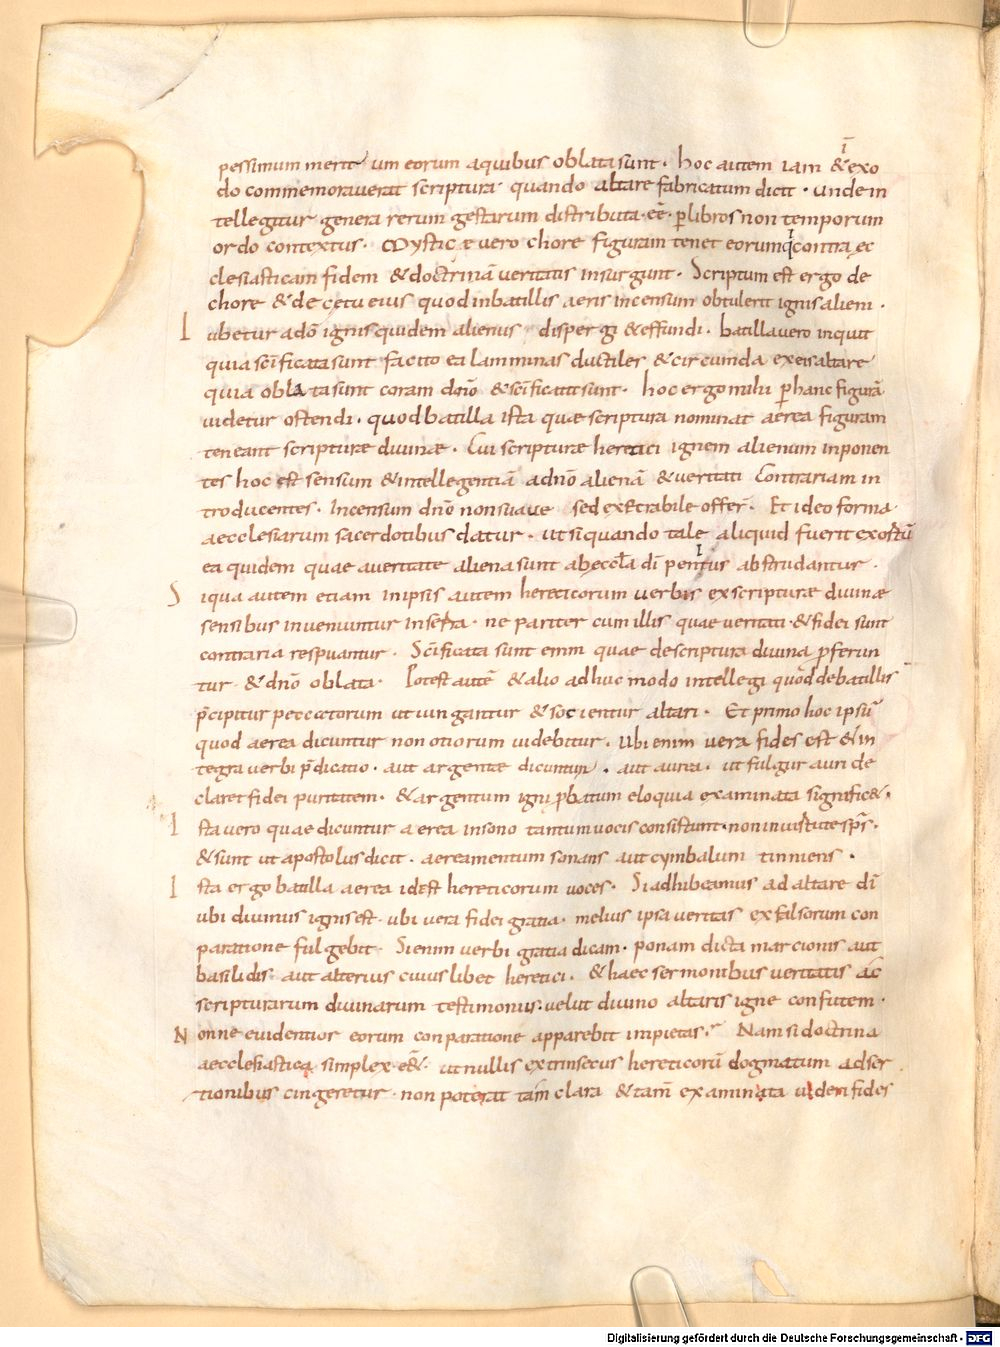 pessimum merit um eorum aquibus oblata sunt · hoc autem iam & exo
do commemoraverat scriptura · quando altare fabricatum dicit · unde in
tellegitur genera rerum gestarum distributa eē · p libros non temporum
ordo contextus · Mysticæ vero chore figuram tenet eorum q contra ec
clesiasticam fidem & doctrinā veritatis insurgunt · Scriptum est ergo de
chore & de cetu eius quod in batillis aeris incensum obtulerit ignis alieni ·
Iubetur a dōo ignis quidem alienus dispergi & effundi · batilla vero inquit
quia scīficata sunt facito ea lamminas ductiles & circumda ex eis altare
quia oblata sunt coram dn̄o & scīficata sunt · hoc ergo mihi p hanc figurā
videtur ostendi · quod batilla ista quæ scriptura nominat aerea figuram
teneant scripturæ divinæ · Cui scripturæ heretici ignem alienum inponen
tes hoc est sensum & intellegentiā a dn̄o alienā & veritati contrariam in
troducentes · Incensum dn̄o non suave sed exsecrabile offer̄ · Et ideo forma
aecclesiarum sacerdotibus datur · ut si quando tale aliquid fuerit
ea quidem quae a veritate aliena sunt ab eccl̄a dī penitus abstrudantur ·
Siqua autem etiam in ipsis autem hereticorum verbis ex scripturæ divinæ
sensibus inveniuntur inserta · ne pariter cum illis quae veritati & fidei sunt
contraria respuantur · Scīficata sunt enim quae de scriptura divina proferun
tur · & dn̄o oblata · Potest autē & alio adhuc modo intellegi quod de batillis
p̄cipitur peccatorum ut iungantur & socientur altari · Et primo hoc ipsū
quod aerea dicuntur non otiorum videbitur · Ubi enim vera fides est & in
tegra verbi p̄dicatio · aut argentæ dicuntur · aut aurea · ut fulgur auri de
claret fidei puritatem · & argentum igni pbatum eloquia examinata signific& ·
Ista vero quae dicuntur aerea in sono tantum vocis consistunt · non in virtute sp̄s ·
& sunt ut apostolus dicit · aereamentum sonans aut cymbalum tinniens ·
Ista ergo batilla aerea id est hereticorum voces · Si adhibeamus ad altare dī
ubi divinus ignis est · ubi vera fidei gratia · melius ipsa veritas ex falsorum con
paratione fulgebit · Si enim verbi gratia dicam · ponam dicta marcionis aut
basilidis aut alterius cuiuslibet heretici · & haec sermonibus veritatis ac
scripturarum divinarum testimoniis · velut divino altaris igne confutem ·
Nonne evidentior eorum conparatione apparebit impietas · Nam si doctrina
aecclesiastica simplex · & ut nullis extrinsecus hereticorū dogmatum adser
tionibus cingeretur · non poterat tam clara & tam̄ examinata videri fides
Digitalisierung gefördert durch die Deutsche Forschungsgemeinschaft · DFG